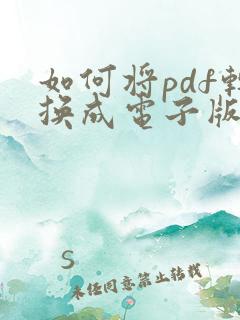 如何将pdf转
换成电子版
S
未经同意禁止转载